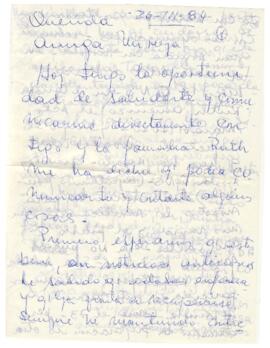 Querida 26-11-84
Amiga
Hoy tengo la oportuni
dad de saludarte y comu
nicarme directamente con
tigo y la familia. Ruth
me ha dicho q podia co
municarte y contarte algunas
cosas.
Primero esperamos q estés
bien, por noticias anteriores
he sabido q estabas enferma
y q la gente te
siempre he mantenido